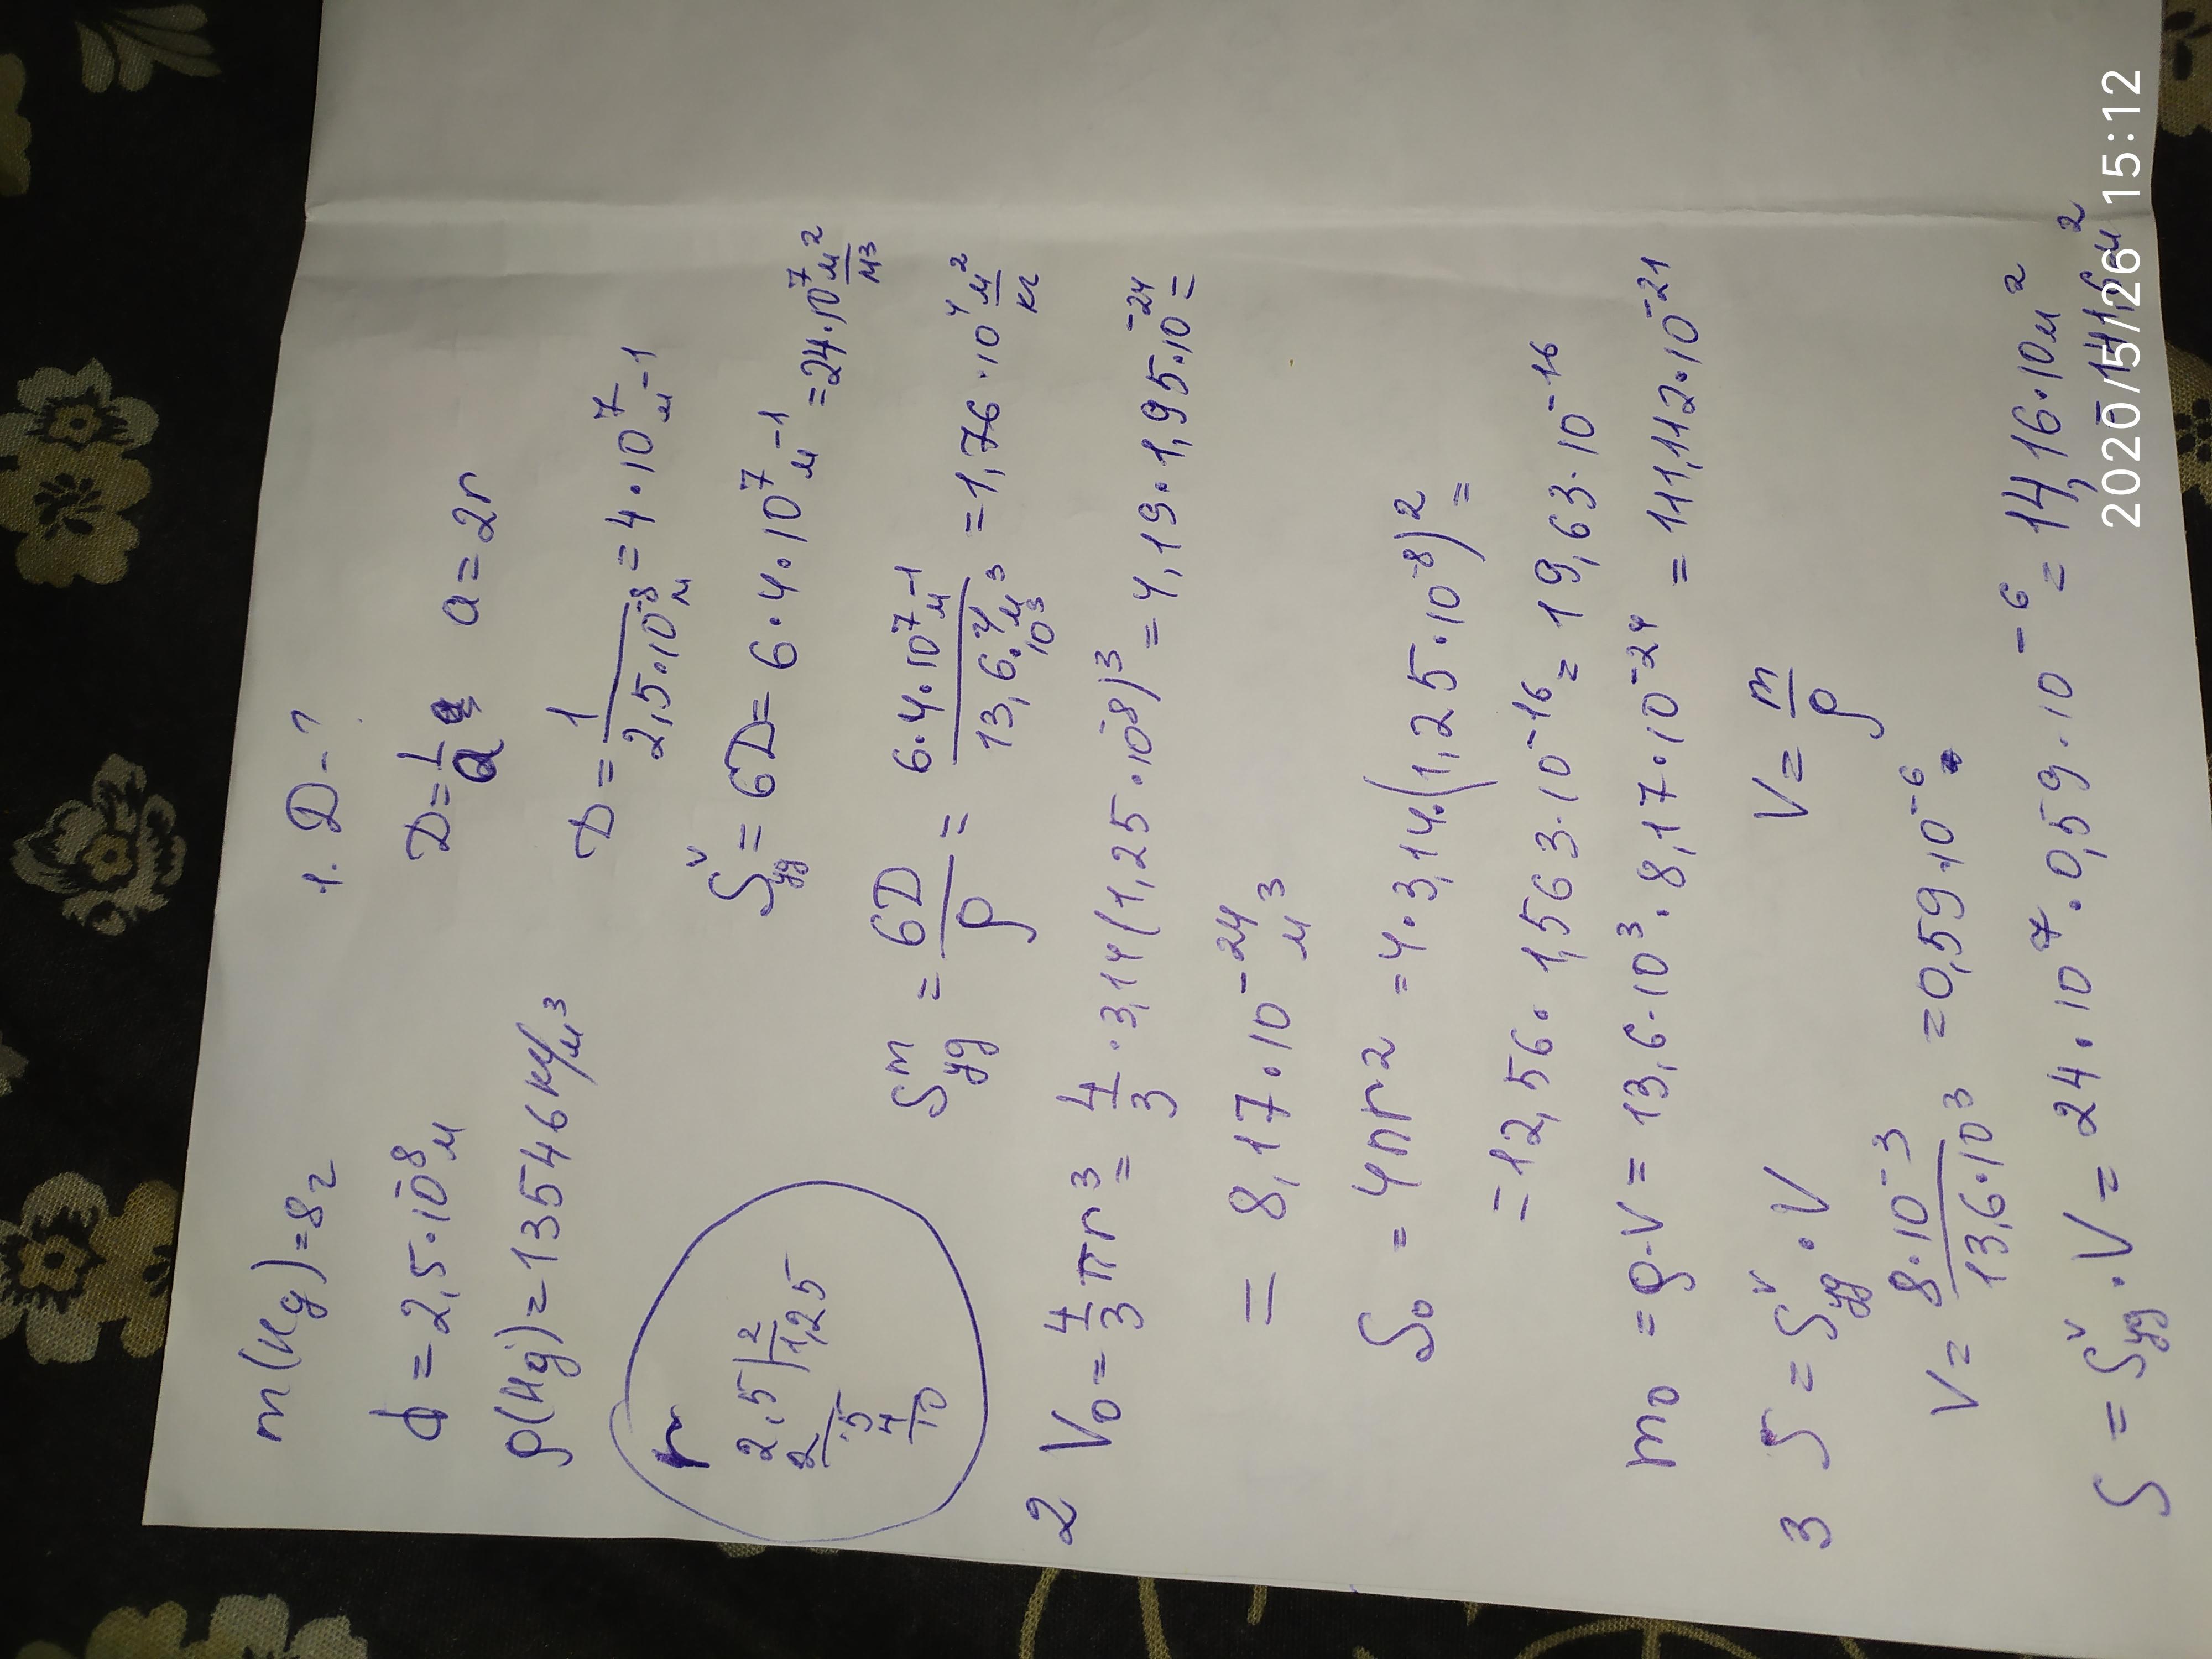 m(Hg)=8г
d=2,5·10⁻⁸м
ρ(Hg)=13546 кг/м³
r
2,5 | 2
2 1,25
5
4
10
1. D-?
D=1/a a=2r
D=1/2,5·10⁻⁸м=4·10⁷м⁻¹
Sᵛуд=6D=6·4·10⁷м⁻¹=24·10⁷м²/м³
Sᵐуд=6D/ρ=6·4·10⁷м⁻¹/13,6·10³=1,76·10⁴м²/кг
2 V₀=4/3πr³=4/3·3,14(1,25·10⁻⁸)³=4,19·1,95·10⁻²⁴=
=8,17·10⁻²⁴м³
S₀=4πr²=4·3,14·(1,25·10⁻⁸)²=
=12,56·1,563·10⁻¹⁶=19,63·10⁻¹⁶
m₀=ρ·V=13,6·10³·8,17·10⁻²⁴=111,112·10⁻²¹
3 S=Sᵛуд·V V=m/ρ
V=8·10⁻³/13,6·10³=0,59·10⁻⁶
S=Sᵛуд·V=24·10⁷·0,59·10⁻⁶=14,16·10м²
=141,6м²
2020/5/26 15:12